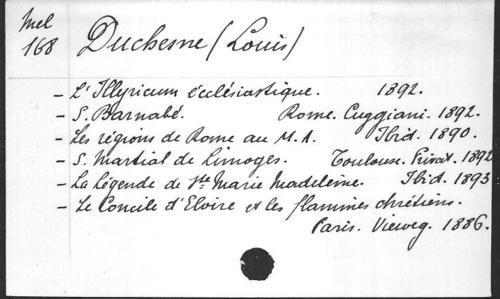 Mel
168
Duchesne (Louis)
- L'Illyricum ecclésiastique. 1892.
- S. Barnabé. Rome. Cuggiani. 1892.
- Les régions de Rome au M.A. Ibid. 1890.
- S. Martial de Limoges. Toulouse. Privat. 1892
- La Légende de Ste Marie Madeleine. Ibid. 1893
- Le Concile d'Elvire et les flamines chrétiens.
Paris. Vieweg. 1886.